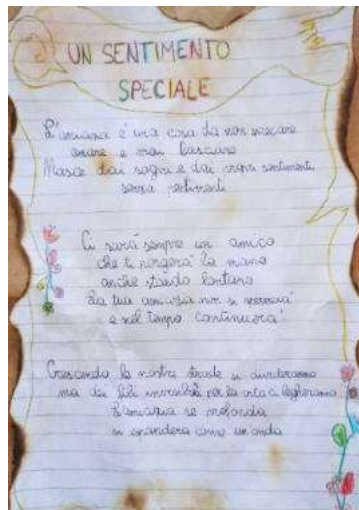 UN SENTIMENTO
SPECIALE
L'amicizia è una cosa da non sprecare
amare e mai lasciare
Nasce dai sogni e dai propri sentimenti
senza pentimenti
Ci sarà sempre un amico
che ti porgerà la mano
anche stando lontano
la tua amicizia non si spezzerà
e nel tempo continuerà
Crescendo le nostre strade si divideranno
ma dei fili invisibili per la vita ci legheranno
L'amicizia se profonda
si espanderà come un'onda